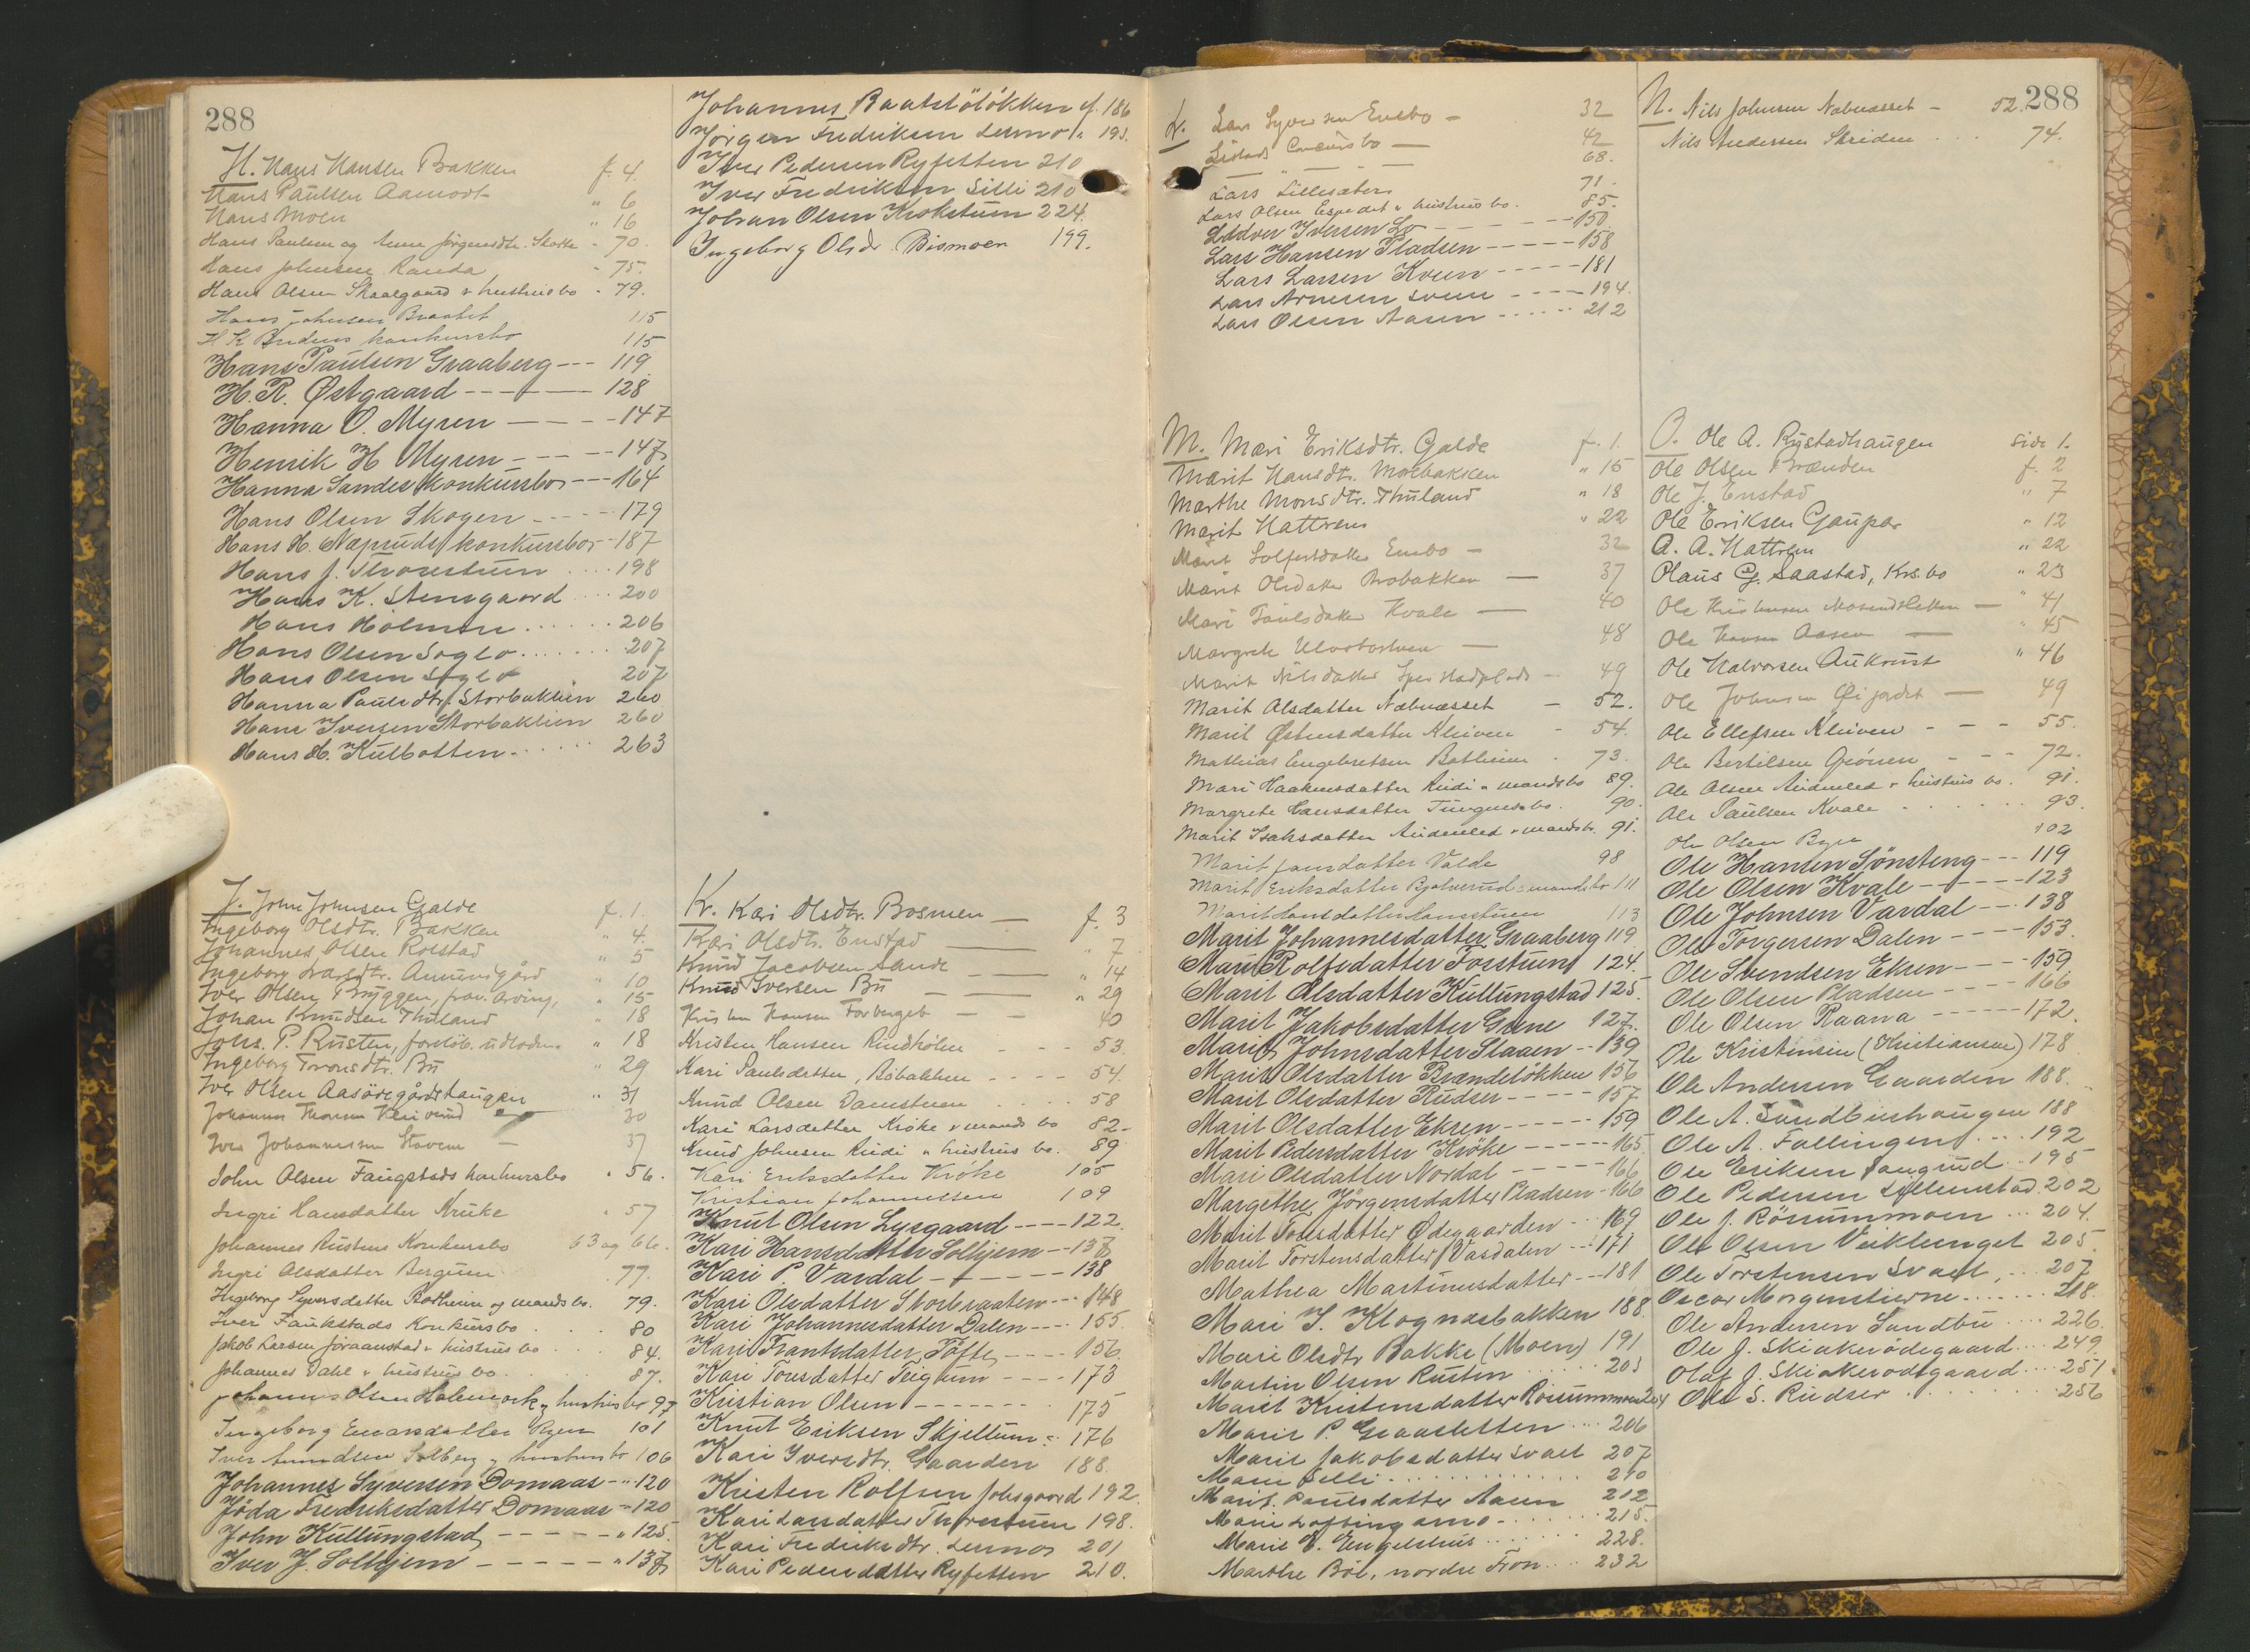 288
H. Hans Hansen Bakken f. 4.
Hans Paulsen Aamodt " 6
Hans Moen " 16
Hans Paulsen og Anne Jørgensdtr. Skotte - 70.
Hans Johnsen Randa - 75.
Hans Olsen Skaalgaard & hustrus bo - 79.
Hans Johnsen Braatet 115
H. K. konkursbo 115
Hans Paulsen Graaberg --- 119
H. R. Østgaard ---- 128
Hanna O. Myren ---- 147
Henrik H Myren ---- 147
Hanna Sandes konkursbo --- 164
Hans Olsen Skogen ---- 179
Hans H. Næpruds konkursbo - 187
Hans J. .... 198
Hans K. Stensgaard ... 200
Hans Holmen ...... 206
Hans Olsen Soglo ....... 207
Hans Olsen Soglo 207
Hanna Paulsdtr. Storbakken 260
Hans Iversen Storbakken 260
Hans H. Kulbotten ...... 263
J. John Johnsen Galde f. 1.
Ingeborg Olsdtr. Bakken " 4.
Johannes Olsen Rolstad " 5
Ingeborg Larsdtr. Amundgård " 10
Iver Olsen Bryggen, " 15
Johan Knudsen Thuland " 18
Johs. P. Rusten, foreløb. udlodn. " 18
Ingeborg Tronsdtr. Bu " 29
Iver Olsen Aasöregårdshaugen " 31
Johannes Thoresen 30
Iver Johannessen Stavem — 37
John Olsen Faugstads konkursbo " 56.
Ingri Hansdatter Kruke " 57
Johannes Rustens Konkursbo 63 og 66.
Ingri Olsdatter Bergum 77.
Ingeborg Syversdatter Bodheim og mands bo. 79.
Iver Faukstads Konkursbo 80
Jakob Larsen Joramstad & hustrus bo 84.
Johannes Dahl & hustrus bo. 87.
Johannes Olsen Holemork & hustrus bo 97
Ingeborg Einarsdatter Bgen 101
Iver Amundsen Solberg & hustrus bo 106
Johannes Syversen Domaas - " 120
Jöda Fredriksdatter Domaas - " 120
John Kullungstad ----- " 125
Iver J. Solhjem ----- " 137
Johannes Baatstölökken f. 186
Jörgen Fredriksen Lesmo " 193.
Iver Pedersen Ryfetten 210
Iver Fredriksen Silli 210
Johan Olsen Krokstuen 224.
Ingeborg Olsdr. Bismoen 199.
K. Kari Olsdtr. Bosmen — f. 3
Kari Olsdtr. Enstad —— " 7
Knud Jacobsen Sande —— " 14
Knud Iversen Bu —— " 29
Kristen Hansen Forberget — 40
Kristen Hansen Rindhølen - - - 53.
Kari Paulsdatter, Böbakken - - - - 54.
Knud Olsen Damstuen ..... 58
Kari Larsdatter Kröke & mands bo 82-
Knud Johnsen Rudi & hustrus bo. 89
Kari Eriksdatter Kröke 105
Kristian Johannessen 109
Knut Olsen Lysgaard ---- 122.
Kari Hansdatter Solhjem -- 137
Kari P. Vardal ----- 138
Kari Olsdatter Storbraaten --- 148
Kari Johannesdatter Dalen ---- 155.
Kari Frantsdatter Tofte ---- 156.
Kari Tonsdatter Teigum ---- 173
Kristian Olsen ------- 175
Knut Eriksen Skjellum -- 176
Kari Iversdtr. Gaarden 188.
Kristen Rolfsen Johsgaard 192.
Kari Larsdatter 198.
Kari Fredriksdtr. Lesmo 201
Kari Pedersdatter Ryfetten 210.
L. Lars Syversen Enebo — 32
Listads Concursbo — 42
— " — 68.
Lars Lillesæter 71.
Lars Olsen Espedal & hustrus bo. 85.
Lodver Iversen Lo ---- 150.
Lars Hansen Pladsen ----- 158
Lars Larsen Kveen ----- 181
Lars Arnesen Sveen ---- 194.
Lars Olsen Aasen ...... 212
M. Mari Eriksdtr. Galde f. 1.
Marit Hansdtr. Moebakken " 15
Marthe Monsdtr. Thuland " 18
Marit Hattrem " 22
Marit datter Enebo — 32
Marit Olsdatter Brobakken — 37
Mari Paulsdatter Kvale — 40
Margrete Ulvsbostuen — 48
Marit Nilsdatter — 49
Marit Olsdatter Næbnæsset — 52.
Marit Østensdatter Kleiven - 54.
Mathias Engebretsen Botheim . 73.
Mari Haakensdatter Rudi & mands bo 89.
Margrete Hansdatter Tungens bo. 90.
Marit Isaksdatter Andenled & mands bo. 91.
Marit Jansdatter Valde 98
Marit Eriksdatter Bjølverud & mands bo 111
Marit Hansdatter Hansstuen 113
Marit Johannesdatter Graaberg 119
Mari Rolfsdatter Forstuen 124.
Marit Olsdatter Kullungstad 125.
Marit Jakobsdatter Grine 127.
Marit Johnsdatter Slaaen -- 139
Marit Olsdatter Brændeløkken 156
Marit Olsdatter Rudser ----- 157
Marit Olsdatter Ekren ----- 159
Marit Pedersdatter Kröke ----- 165
Mari Olsdatter Nordal ----- 166
Margethe Jörgensdatter Pladsen - 166
Marit Tolsdatter Ødegaarden --- 169
Marit Torstensdatter Vasdalen --- 171
Mathea Martinusdatter --- 181
Mari I. Klognæsbakken 188.
Mari Olsdtr Bakke (Moen) 191
Martin Olsen Rusten ..... 203
Marit Kristensdatter Rossummoen 204
Marit P. Graasletten .... 206
Marit Jakobsdatter Svael 207
Mari Selli ............ 210
Marit Paulsdatter Aasen 212
Marie Loftingsmo ....... 215.
Marie E. Engelshus ...... 228.
Marthe Böe, nordre Fron .... 232
N. Nils Johnsen Næbnæsset — 52. 288
Nils Andersen Skriden .... 74.
O. Ole A. Rustadhaugen side 1.
Ole Olsen Brænden f. 2
Ole J. Enstad " 7
Ole Eriksen Gaupar " 12
A. A. Hattrem " 22
Olaus G. Saastad, Krs.bo " 23
Ole Kristensen — " 41
Ole Hansen Aasen — " 45
Ole Halvorsen Aukrust " 46
Ole Johnsen Øijordet — 49
Ole Ellefsen Kleiven - - - 55.
Ole Bertilsen Grönen - - - 72.
Ole Olsen Andenled & hustrus bo. 91.
Ole Paulsen Kvale ........ 93.
Ole Olsen Bgen 102
Ole Hansen Sönsteng --- 119
Ole Olsen Kvale ------ 123
Ole Johnsen Vardal --- 138
Ole Torgersen Dalen ---- 153.
Ole Svendsen Ekren ---- 159
Ole Olsen Pladsen ---- 166
Ole Olsen Raana ------ 172.
Ole Kristensen (Kristiansen) 178
Ole Andersen Gaarden 188.
Ole A. Sandbushaugen 188
Ole A. Fallingen .... 192
Ole Eriksen Haugrud .. 195
Ole Pedersen Lillemstad. 202
Ole J. Rössummoen ... 204.
Ole Olsen Veiklunget 205.
Ole Torstensen Svael, ... 207
Oscar Morgenstierne ...... 218.
Ole Andersen Sandbu .... 226.
Ole J. Skiakerødegaard ... 249.
Olaf J. Skiakerødegaard .... 251.
Ole S. Rudser ........ 256